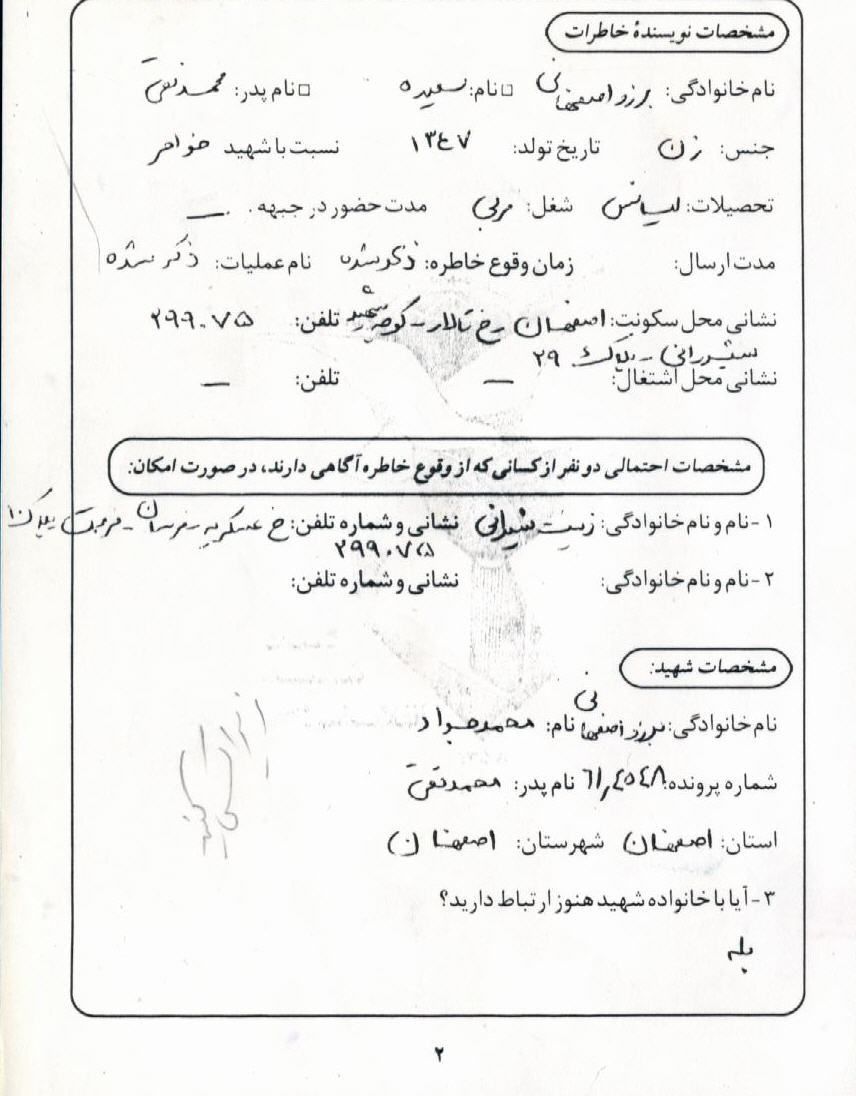 مشخصات نویسندهٔ خاطرات
نام خانوادگی: برزو اصفهانی □ نام: سعیده □ نام پدر: محمدتقی
جنس: زن تاریخ تولد: ۱۳۴۷ نسبت با شهید خواهر
تحصیلات: لیسانس شغل: مربی مدت حضور در جبهه. —
مدت ارسال: زمان وقوع خاطره: ذکر شده نام عملیات: ذکر شده
نشانی محل سکونت: اصفهان خ تالار - کوچه شهید تلفن: ۲۹۹۰۷۵
پلاک ۲۹
نشانی محل اشتغال: — تلفن: —
مشخصات احتمالی دو نفر از کسانی که از وقوع خاطره آگاهی دارند، در صورت امکان:
۱- نام و نام خانوادگی: زینت نشانی و شماره تلفن: خ عسکریه - پلاک ۱۰
۲۹۹۰۷۵
۲- نام و نام خانوادگی: نشانی و شماره تلفن:
مشخصات شهید:
نام خانوادگی: برزو اصفهانی نام: محمدجواد
شماره پرونده: نام پدر: محمدتقی
استان: اصفهان شهرستان: اصفهان
۳- آیا با خانواده شهید هنوز ارتباط دارید؟
بله
۲